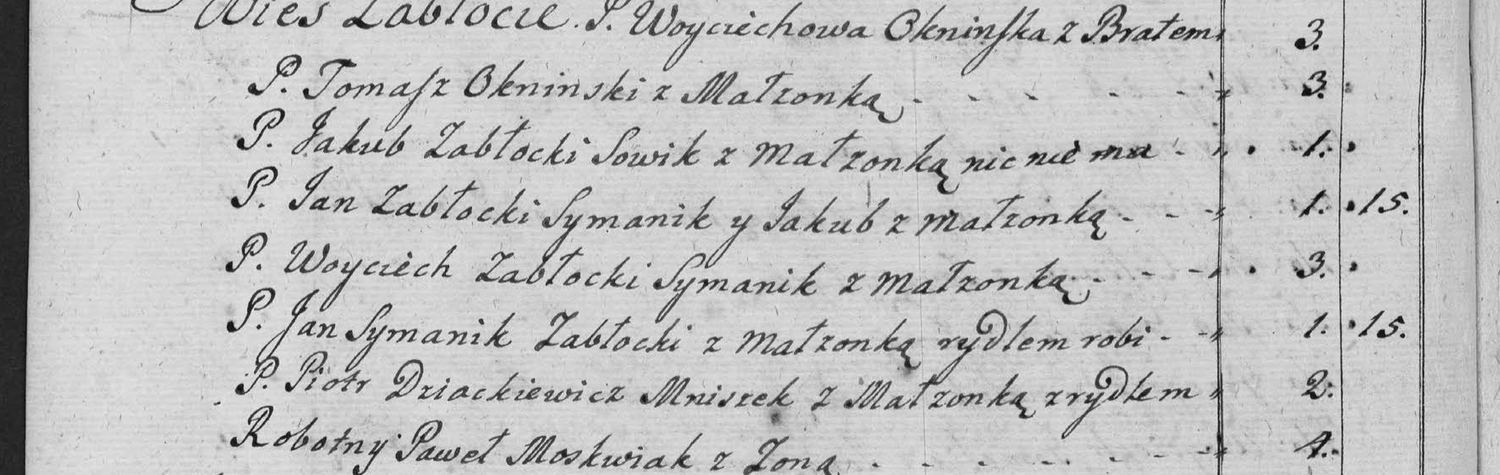 Wies Zabłocie. P. Woyciechowa Okninska z Bratem 3.
P. Tomasz Okninski z Małzonką - - - - - - 3.
P. Jakub Zabłocki Sowik z Małzonką nic nie ma - 1.
P. Jan Zabłocki Symanik y Jakub z małzonką - - - 1. 15.
P. Woyciech Zabłocki Symanik z małzonką - - - - 3.
P. Jan Symanik Zabłocki z małzonką rydlem robi - - 1. 15.
P. Piotr Dziackiewicz Mniszek z Małzonką z rydlem 2.
Robotny Paweł Moskwiak z Zoną - - - - - 4.